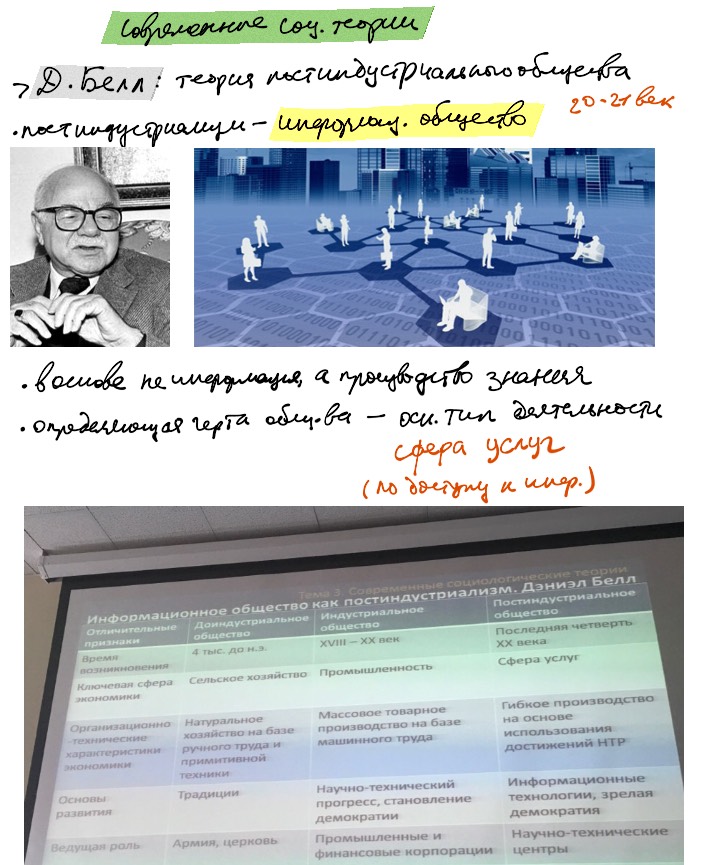 Современные соц. теории
> Д. Белл: теория постиндустриального общества
20-21 век
• постиндустриализм – информац. общество
• в основе не информация, а производство знания
• определяющая черта общ-ва – осн. тип деятельности
сфера услуг
(по доступу к инф.)
Тема 3. Современные социологические теории
Информационное общество как постиндустриализм. Дэниэл Белл
Отличительные признаки
Доиндустриальное общество
Индустриальное общество
Постиндустриальное общество
Время возникновения
4 тыс. до н.э.
XVIII – XX век
Последняя четверть XX века
Ключевая сфера экономики
Сельское хозяйство
Промышленность
Сфера услуг
Организационно-технические характеристики экономики
Натуральное хозяйство на базе ручного труда и примитивной техники
Массовое товарное производство на базе машинного труда
Гибкое производство на основе использования достижений НТР
Основы развития
Традиции
Научно-технический прогресс, становление демократии
Информационные технологии, зрелая демократия
Ведущая роль
Армия, церковь
Промышленные и финансовые корпорации
Научно-технические центры